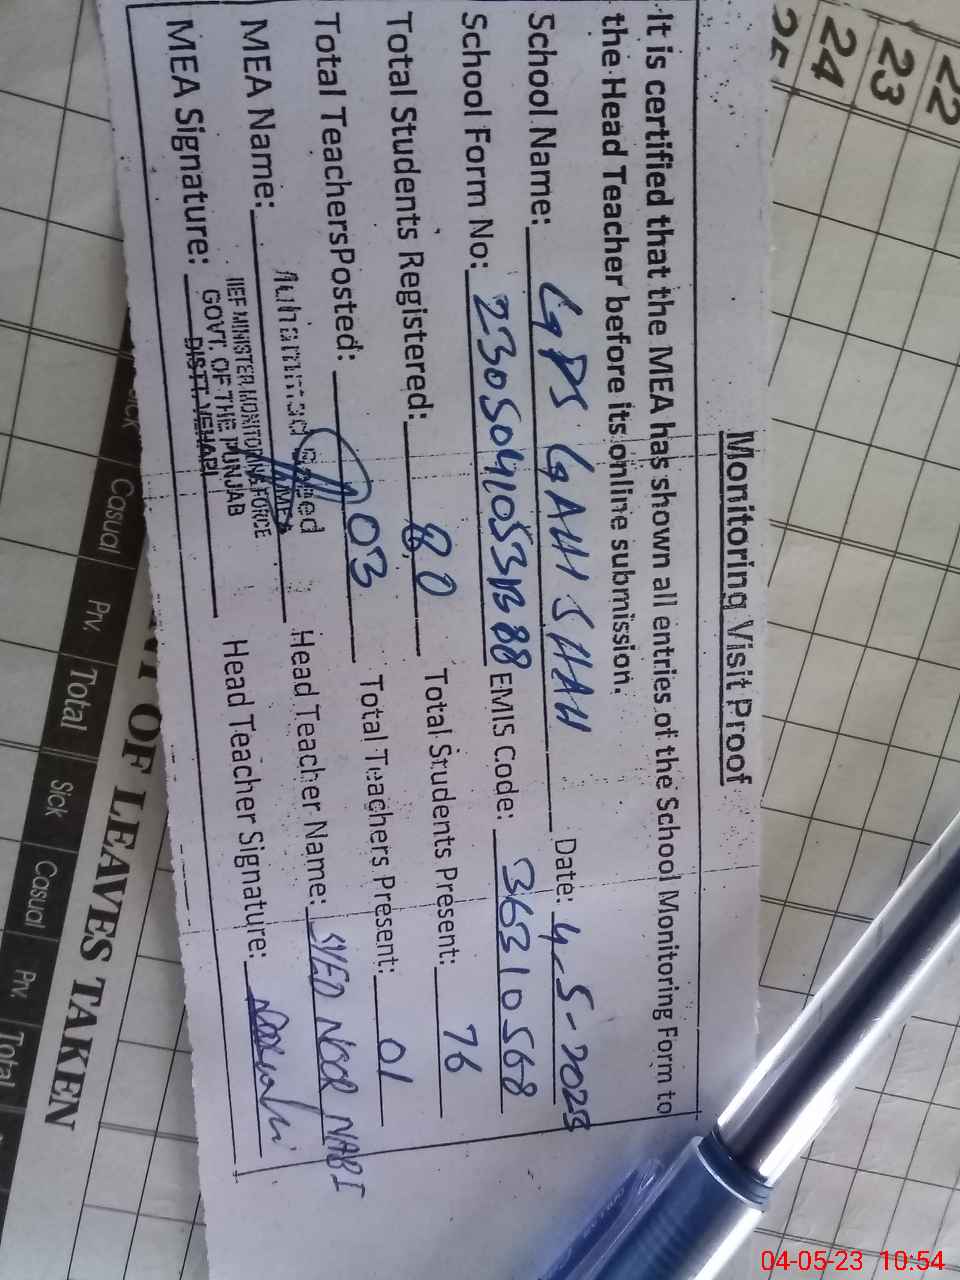 Monitoring Visit Proof
It is certified that the MEA has shown all entries of the School Monitoring Form to
the Head Teacher before its online submission.
School Name: GPS GAHI SHAH Date: 4-5-2023
School Form No: EMIS Code: 36310568
Total Students Registered: 80 Total Students Present: 76
Total TeachersPosted: 03 Total Teachers Present: 01
MEA Name: Head Teacher Name: SYED NOOR NABI
MEA Signature: Head Teacher Signature:
GOVT. OF THE PUNJAB
DISTT. VEHARI
22
23
24
25
OF LEAVES TAKEN
Sick Casual Prv. Total Sick Casual Prv. Total
04-05-23 10:54